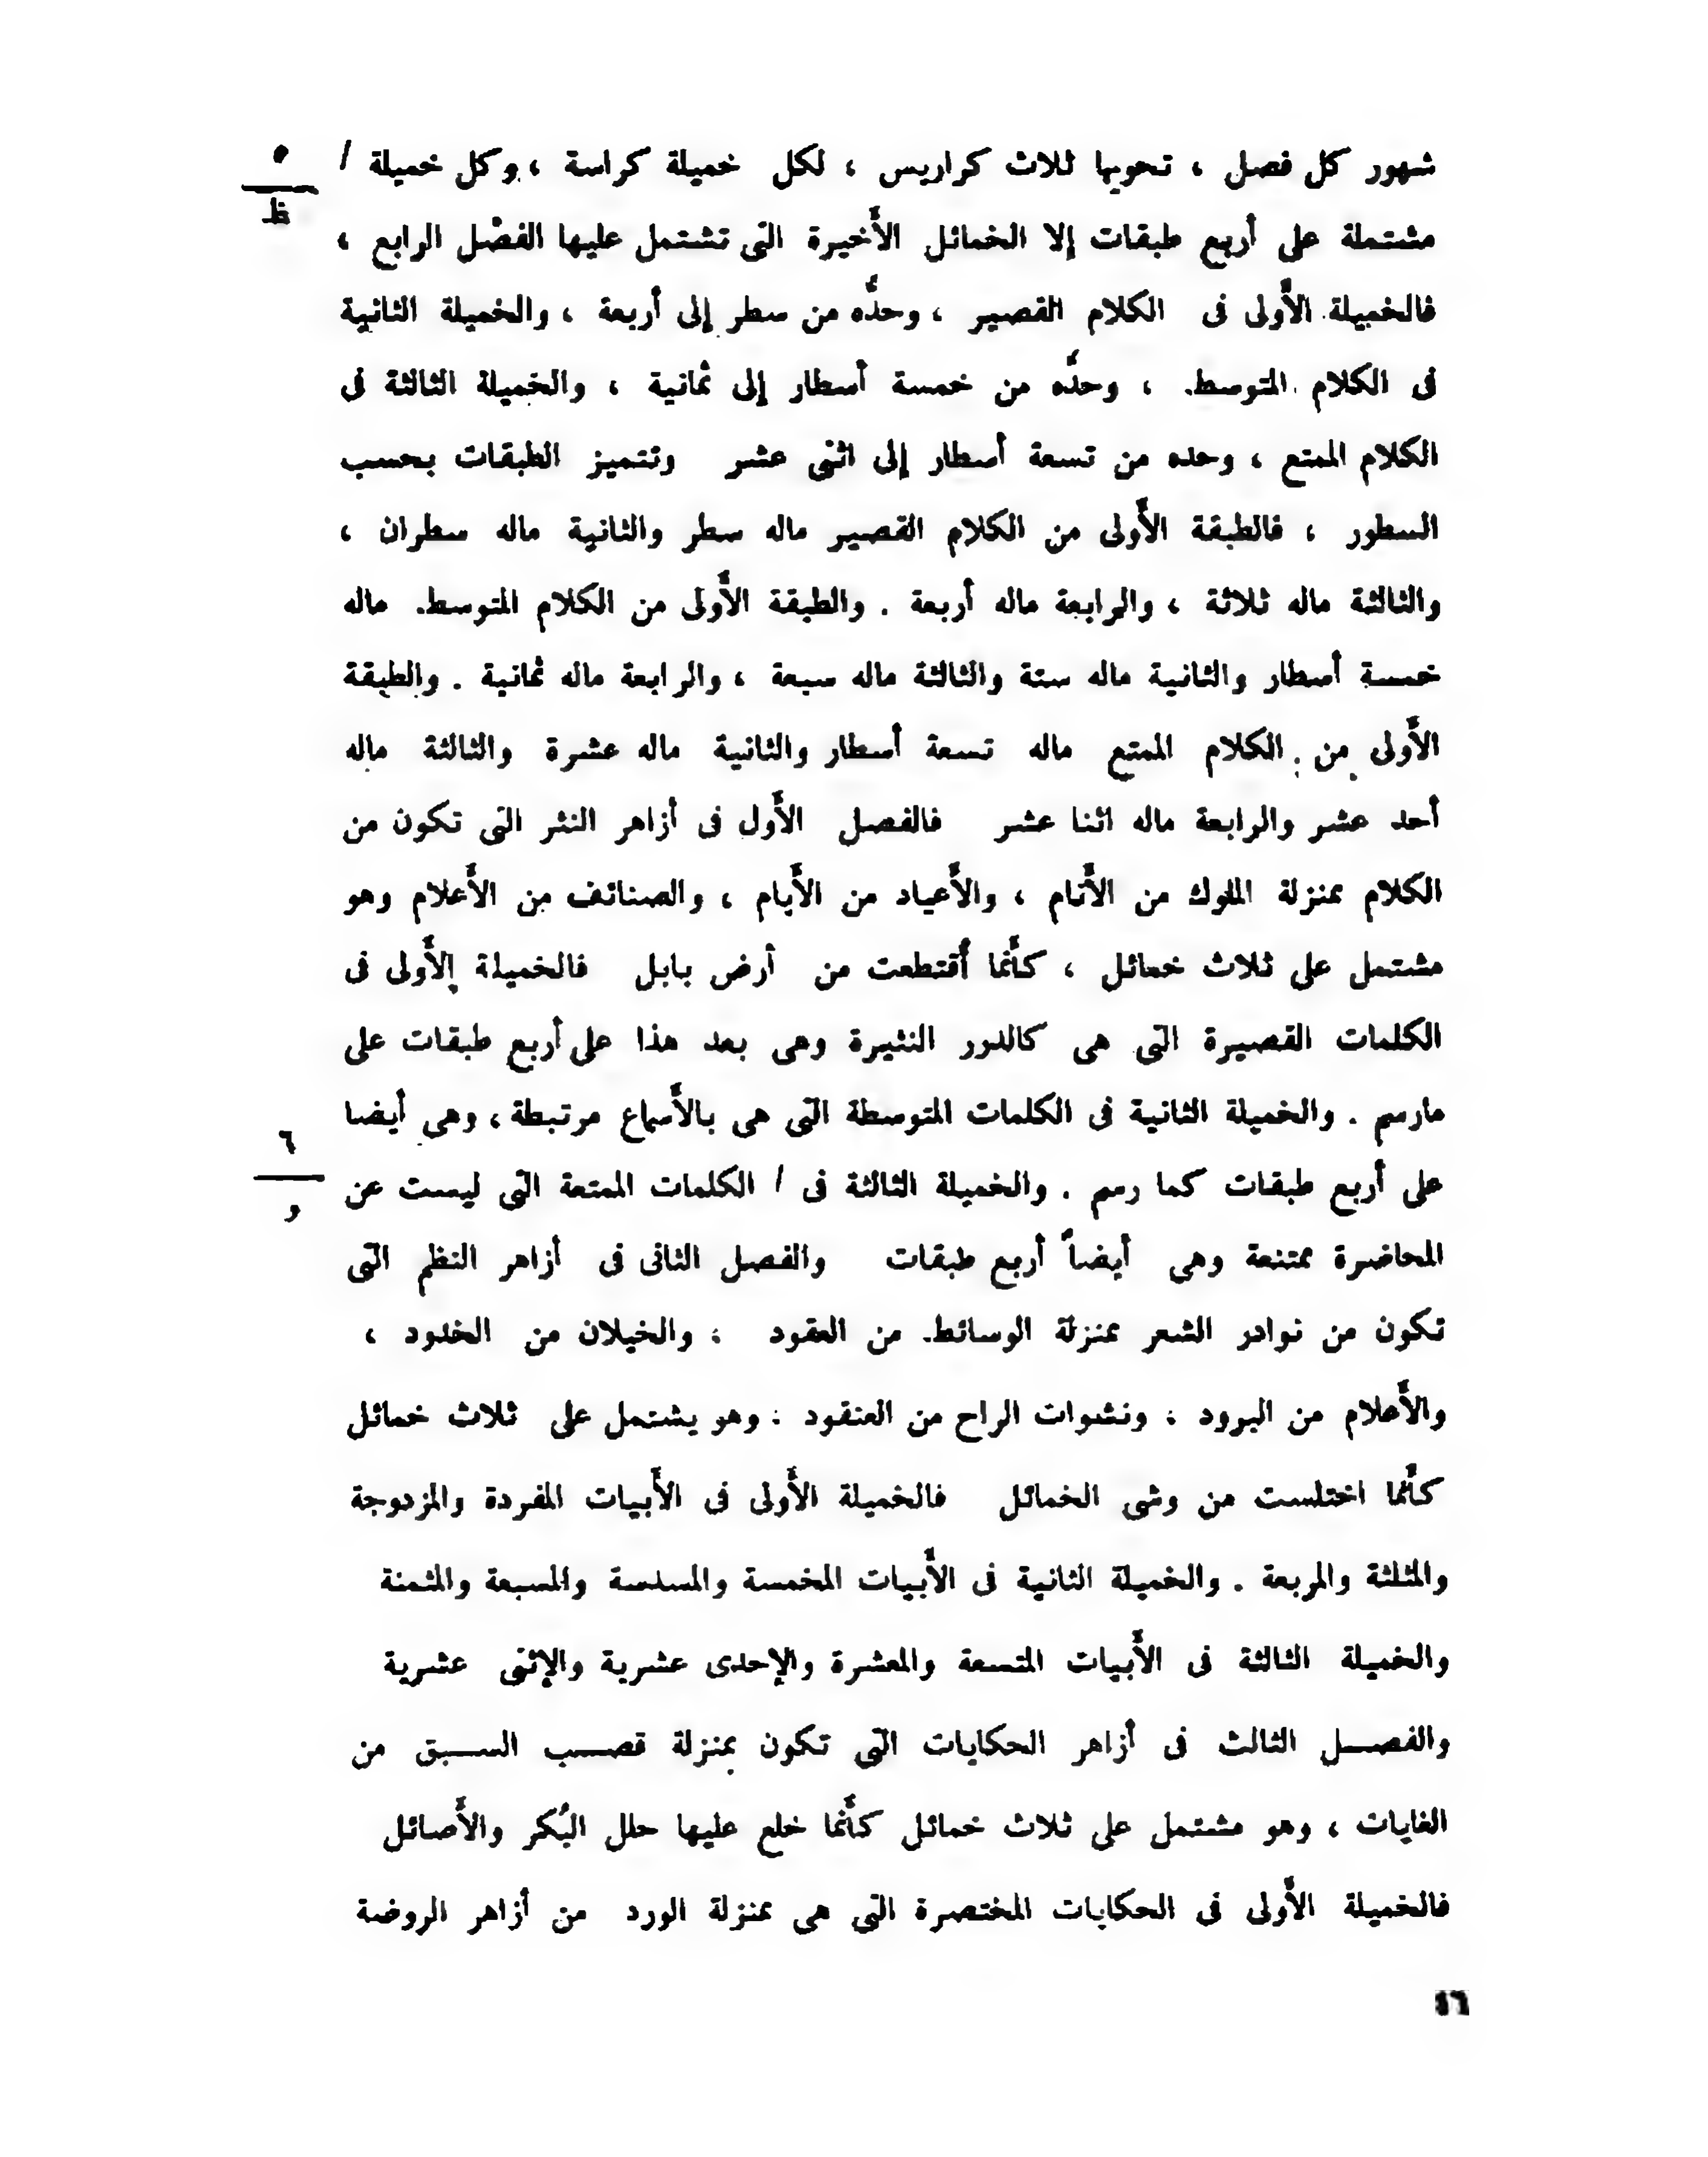 شهور كل فصل ، تحويها ثلاث كراريس ، لكل خميلة كراسة ، وكل خميلة /
٥
ظ
مشتملة على أربع طبقات إلا الخمائل الأَخيرة التى تشتمل عليها الفصل الرابع ،
فالخميلة الأَولى فى الكلام القصير ، وحدُّه من سطر إلى أربعة ، والخميلة الثانية
فى الكلام المتوسط ، وحدُّه من خمسة أسطار إلى ثمانية ، والخميلة الثالثة فى
الكلام الممتع ، وحده من تسعة أسطار إلى اثنى عشر وتتميز الطبقات بحسب
السطور ، فالطبقة الأَولى من الكلام القصير ماله سطر والثانية ماله سطران ،
والثالثة ماله ثلاثة ، والرابعة ماله أربعة . والطبقة الأَولى من الكلام المتوسط ماله
خمسة أسطار والثانية ماله ستة والثالثة ماله سبعة ، والرابعة ماله ثمانية . والطبقة
الأَولى من الكلام الممتع ماله تسعة أسطار والثانية ماله عشرة والثالثة ماله
أحد عشر والرابعة ماله اثنا عشر فالفصل الأَول فى أزاهر النثر التى تكون من
الكلام بمنزلة الملوك من الأَنام ، والأَعياد من الأَيام ، والصنائف من الأَعلام وهو
مشتمل على ثلاث خمائل ، كأَنما أُقتطعت من أرض بابل فالخميلة الأَولى فى
الكلمات القصيرة التى هى كالدرر النثيرة وهى بعد هذا على أربع طبقات على
مارسم . والخميلة الثانية فى الكلمات المتوسطة التى هى بالأَسماع مرتبطة ، وهى أيضا
٦
و
على أربع طبقات كما رسم . والخميلة الثالثة فى / الكلمات الممتعة التى ليست عن
المحاضرة ممتنعة وهى أيضاً أربع طبقات والفصل الثانى فى أزاهر النظم التى
تكون من نوادر الشعر بمنزلة الوسائط من العقود ، والخيلان من الخدود ،
والأَعلام من البرود ، ونشوات الراح من العنقود : وهو يشتمل على ثلاث خمائل
كأَنما اختلست من وشى الخمائل فالخميلة الأَولى فى الأَبيات المفردة والمزدوجة
والمثلثة والمربعة . والخميلة الثانية فى الأَبيات المخمسة والمسدسة والمسبعة والمثمنة
والخميلة الثالثة فى الأَبيات المتسعة والمعشرة والإحدى عشرية والإثنى عشرية
والفصل الثالث فى أزاهر الحكايات التى تكون بمنزلة قصب السبق من
الغايات ، وهو مشتمل على ثلاث خمائل كأَنما خلع عليها حلل البُكر والأَصائل
فالخميلة الأَولى فى الحكايات المختصرة التى هى بمنزلة الورد من أزاهر الروضة
٤٦